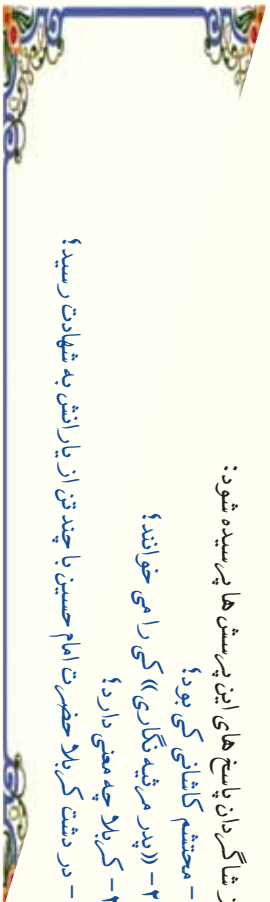 ز شاگردان پاسخ های این پرسش ها پرسیده شود:
- محتشم کاشانی کی بود؟
۲- «پدر مرثیه نگاری» کی را می خوانند؟
- کربلا چه معنی دارد؟
- در دشت کربلا حضرت امام حسین با چند تن از یارانش به شهادت رسید؟